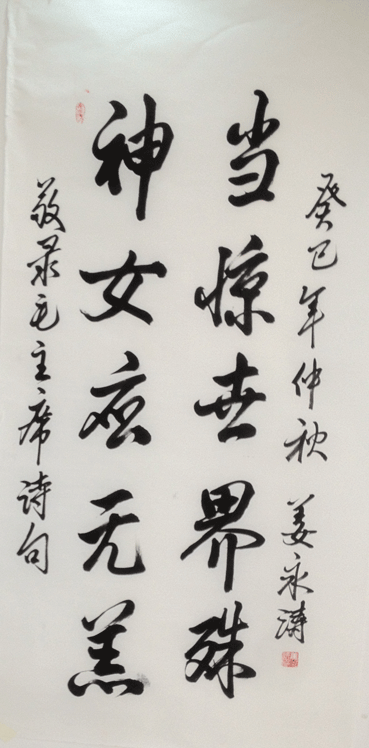 敬录毛主席诗句
神女应无恙
当惊世界殊
癸巳年仲秋 姜永涛